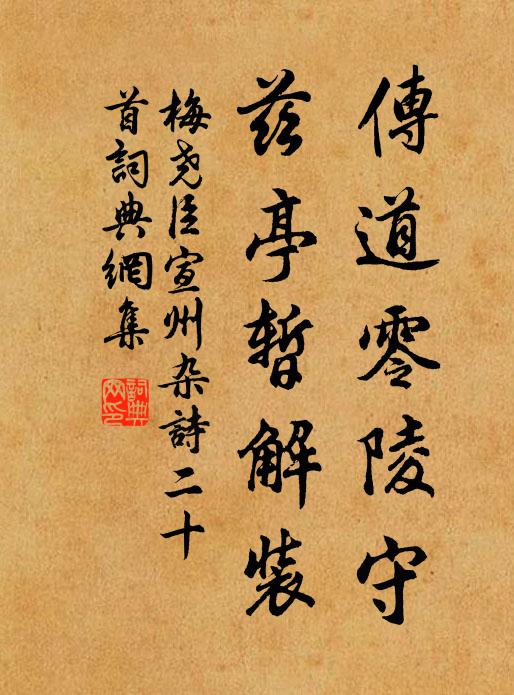 傳道零陵守
茲亭暫解裝
梅尧臣宣州杂詩二十
首詞典網集
詞典
网印